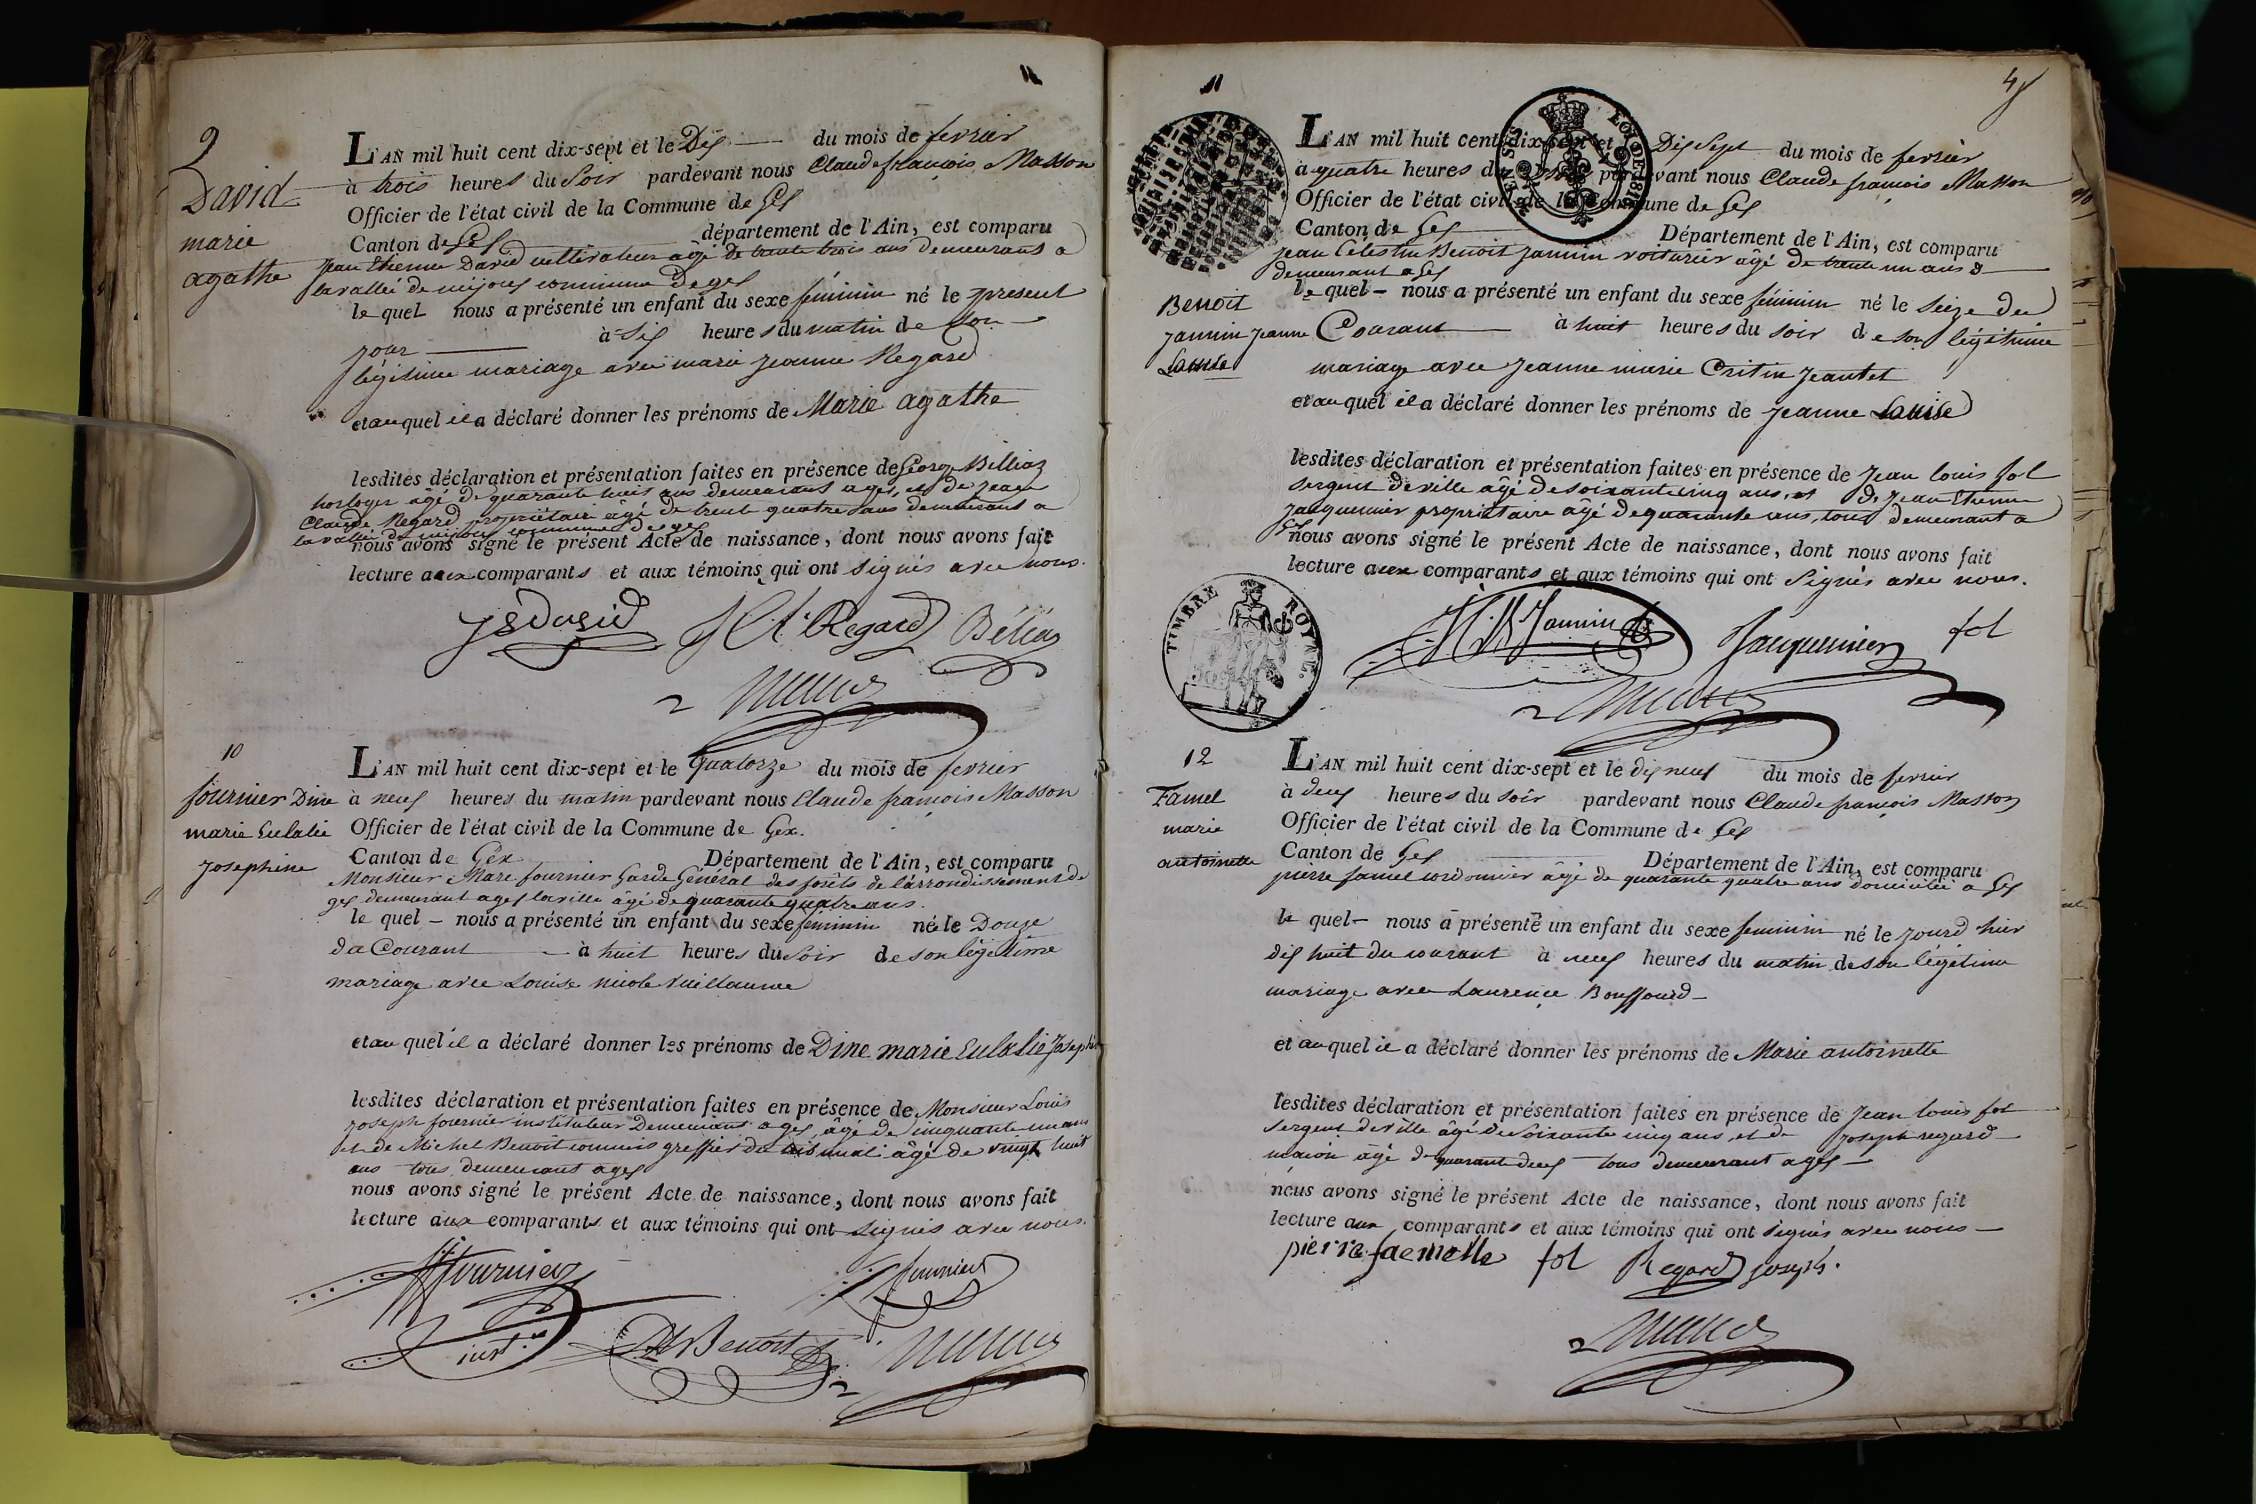 9
David
marie
agathe
L'AN mil huit cent dix-sept et le Dix du mois de fevrier
à trois heures du Soir pardevant nous Claude françois Masson
Officier de l'état civil de la Commune de Gex
Canton de Gex département de l'Ain, est comparu
Jean Etienne David cultivateur âgé de trente trois ans demeurant a
la vallée de mijoux commune de gex
le quel nous a présenté un enfant du sexe féminin né le present
jour à six heures du matin de son
légitime mariage avec marie jeanne Regard
et auquel il a déclaré donner les prénoms de Marie agathe
lesdites déclaration et présentation faites en présence de George Belliaz
horloger âgé de quarante huit ans demeurant a gex, et de jean
Claude Regard propriétaire âgé de trente quatre ans demeurant a
la vallée de mijoux commune de gex
nous avons signé le présent Acte de naissance, dont nous avons fait
lecture aux comparants et aux témoins qui ont signés avec nous.
JE David Regard Béliaz
10
fournier Dine
marie Eulalie
josephine
L'AN mil huit cent dix-sept et le quatorze du mois de fevrier
à neuf heures du matin pardevant nous Claude françois Masson
Officier de l'état civil de la Commune de Gex.
Canton de Gex Département de l'Ain, est comparu
Monsieur Marc fournier Garde Général des forêts de l'arrondissement de
gex demeurant a gex la ville âgé de quarante quatre ans.
le quel nous a présenté un enfant du sexe féminin né le Douze
du Courant à huit heures du Soir de son légitime
mariage avec Louise nicole Vuillaume
et au quel il a déclaré donner les prénoms de Dine marie Eulalie Josephine
lesdites déclaration et présentation faites en présence de Monsieur Louis
joseph fournier instituteur Demeurant a gex, âgé de cinquante un ans
et de Michel Benoît commis greffier du tribunal âgé de vingt huit
ans tous demeurant a gex
nous avons signé le présent Acte de naissance, dont nous avons fait
lecture aux comparants et aux témoins qui ont signés avec nous.
fournier fournier
inst.r Benoit
11
4
LOI DE 1816
L'AN mil huit cent dix-sept et le Dix Sept du mois de fevrier
à quatre heures du pardevant nous Claude françois Masson
Officier de l'état civil de la Commune de Gex
Canton de Gex Département de l'Ain, est comparu
jean Célestin Benoit jannin voiturier âgé de trente un ans
demeurant a Gex
Benoit
jannin jeanne
Louise
le quel nous a présenté un enfant du sexe féminin né le seize du
Courant à huit heures du soir de son légitime
mariage avec jeanne marie Critin jeantet
et au quel il a déclaré donner les prénoms de jeanne Louise
lesdites déclaration et présentation faites en présence de jean louis fol
sergent de ville âgé de soixante cinq ans, et de jean Etienne
jacquemier propriétaire âgé de quarante ans, tous demeurant a
Gex
nous avons signé le présent Acte de naissance, dont nous avons fait
lecture aux comparants et aux témoins qui ont signés avec nous.
TIMBRE ROYAL.
Jannin Jacquemier fol
12
Famel
marie
antoinette
L'AN mil huit cent dix-sept et le dix neuf du mois de fevrier
à deux heures du soir pardevant nous Claude françois Masson
Officier de l'état civil de la Commune de Gex
Canton de Gex Département de l'Ain, est comparu
pierre famel cordonnier âgé de quarante quatre ans domicilié a Gex
le quel nous a présenté un enfant du sexe feminin né le jourd hier
dix huit du courant à neuf heures du matin de son légitime
mariage avec Laurence Bouffourd
et au quel il a déclaré donner les prénoms de Marie antoinette
lesdites déclaration et présentation faites en présence de jean louis fol
sergent de ville âgé de soixante cinq ans, et de joseph regard
maçon âgé de quarante deux tous demeurant a gex
nous avons signé le présent Acte de naissance, dont nous avons fait
lecture aux comparants et aux témoins qui ont signés avec nous
pierre famelle fol Regard joseph.